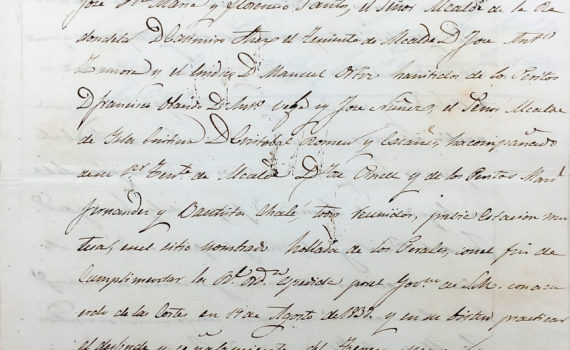 José Mª Maria y Florencio Santos, el Señor Alcalde de la Re
dondela D Casimiro el Teniente de Alcalde D José Antº
Zamora y el Sindico D Manuel Ortiz hasistidos de los Peritos
D francisco D Antº Vega y Jose Nuñez, el Señor Alcalde
de Isla Cristina D Cristobal Romeu y hacompañado
de su 1er Tente de Alcalde D José y de los Peritos Manl
fernandez y Bautista todos reunidos, previa citacion mu
tua, en el sitio nombrado hollada de los Perales, con el fin de
Cumplimentar la Rl ordn espedida por el Govno de S.M. con acu
erdo de las Cortes en de Agosto de 1837. y en su birtud practicar
el deslinde y señalamiento del